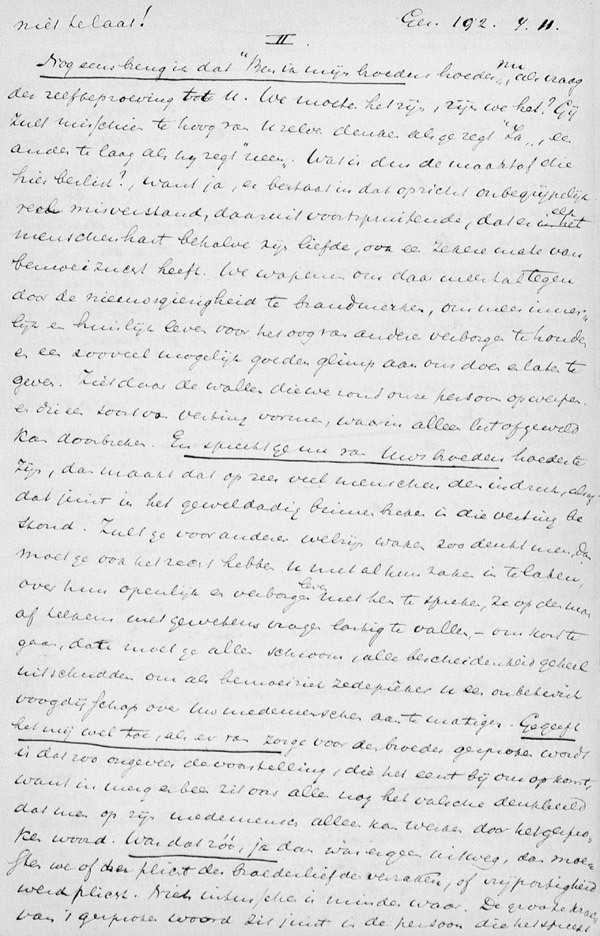 niet te laat! Gez. 192. 4. 11.
II
Nog eens breng ik dat "Ben ik mijns broeders hoeder" nu, als vraag
der zelfbeproeving tot U. We moeten het zijn, zijn we het? Gij
zult misschien te hoog van U zelve denken als ge zegt "Ja", een
ander te laag als hij zegt "neen". Wat is dan de maatstaf die
hier beslist?, want ja, er bestaat in dat opzicht onbegrijpelijk
veel misverstand, daaruit voortspruitende, dat er in elk
menschenhart behalve zijn liefde, ook een zekere mate van
bemoeizucht heeft. We wapenen ons daar meestal tegen
door de nieuwsgierigheid te brandmerken, ons meer inner-
lijk en huislijk leven voor het oog van anderen verborgen te houden
en een zooveel mogelijk goeden glimp aan ons doen en laten te
geven. Ziet daar de wallen die we rond onze persoon opwerpen
en die een soort van vesting vormen, waarin alleen list of geweld
kan doorbreken. En spreekt ge nu van Uws broeders hoeder te
zijn, dan maakt dat op zeer veel menschen den indruk, alsof
dat juist in het gewelddadig binnenbreken in die vesting be
stond. Zult ge voor anderer welzijn waken zoo denkt men, dan
moet ge ook het recht hebben U met al hun zaken in te laten,
over hun openlijk en verborgen leven met hen te spreken, ze op den man
af telkens met gewetens vragen lastig te vallen, – om kort te
gaan, dan moet ge allen schroom, alle bescheidenheid geheel
uitschudden om als bemoeiziek zedepreker U een onbeperkt
voogdijschap over Uw medemenschen aan te matigen. Ge geeft
het mij wel toe, als er van zorge voor den broeder gesproken wordt
is dat zoo ongeveer de voorstelling, die het eerst bij ons opkomt,
want in merg en been zit ons allen nog het valsche denkbeeld
dat men op zijn medemensch alleen kan werken door het gespro-
ken woord. Was dat zóó, ja dan was er geen uitweg, dan moe-
sten we of den plicht der broederliefde verzaken, of vrijpostigheid
werd plicht. Niets intusschen is minder waar. De groote kracht
van 't gesproken woord zit juist in de persoon die het spreekt